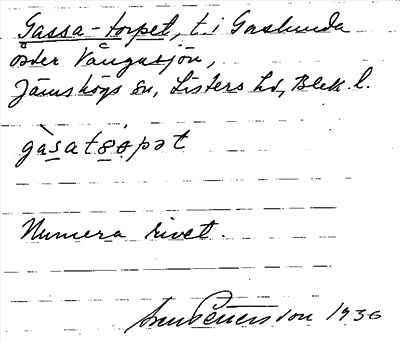 Gassa-torpet, t. i Gaslunda
öster Vångasjön,
Jämshögs sn, Listers hd, Blek. l.
gàsatɞ̣pət
Numera rivet.
Sven Petersson 1936